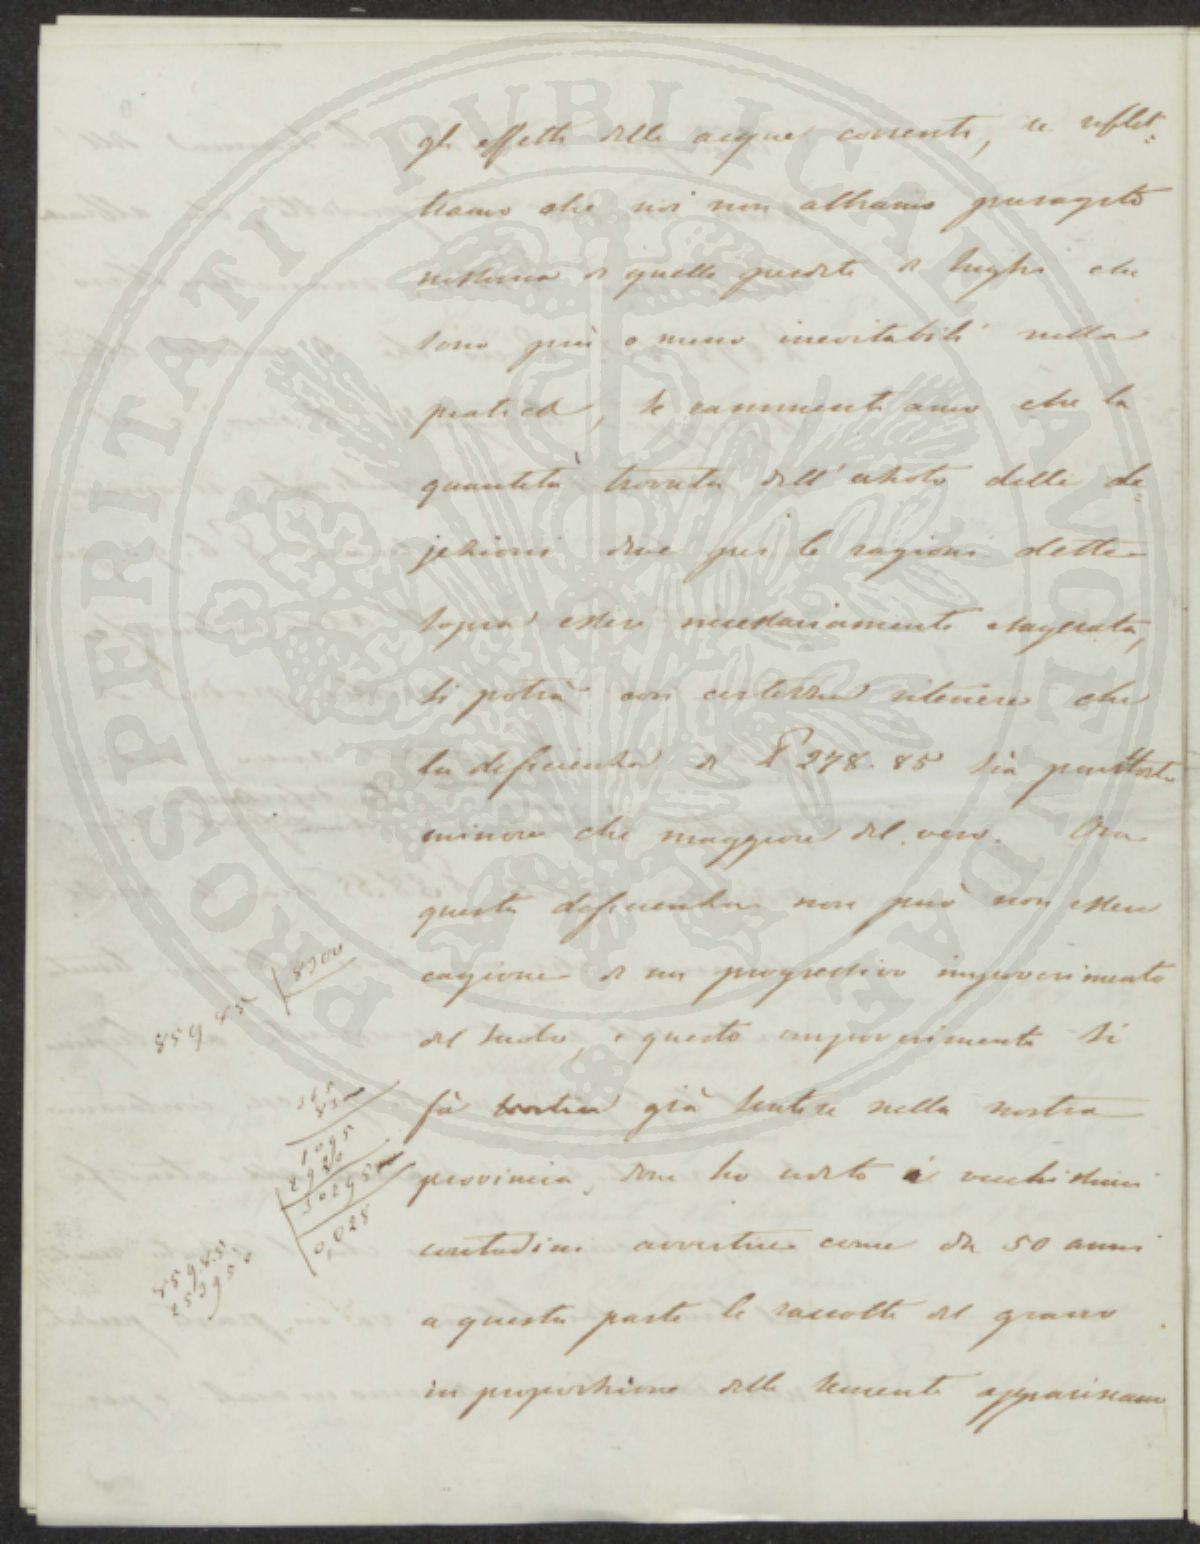 gli effetti delle acque correnti, se reflet=
tiamo che noi non abbiamo presagito
nessuna di quelle perdite di luoghi che
sono più o meno inevitabili nella
pratica, se rammentiamo che la
quantità trovata dell'azoto delle de=
jezioni deve per le ragioni dette
sopra essere necessariamente esagerata,
si potrà con certezza ritenere che
la deficienza di 278.85 sia piuttosto
minore che maggiore del vero. Ora
questa deficienza non può non essere
cagione di un progressivo impoverimento
del suolo, e questo impoverimento si
fà già sentire nella nostra
provincia, dove ho udito i vecchissimi
contadini avvertire come da 50 anni
a questa parte le raccolte del grano
in proporzione delle sementi appariscano
859.85
1095
0,028
PROSPERITATI PUBLICAE AUGENDAE